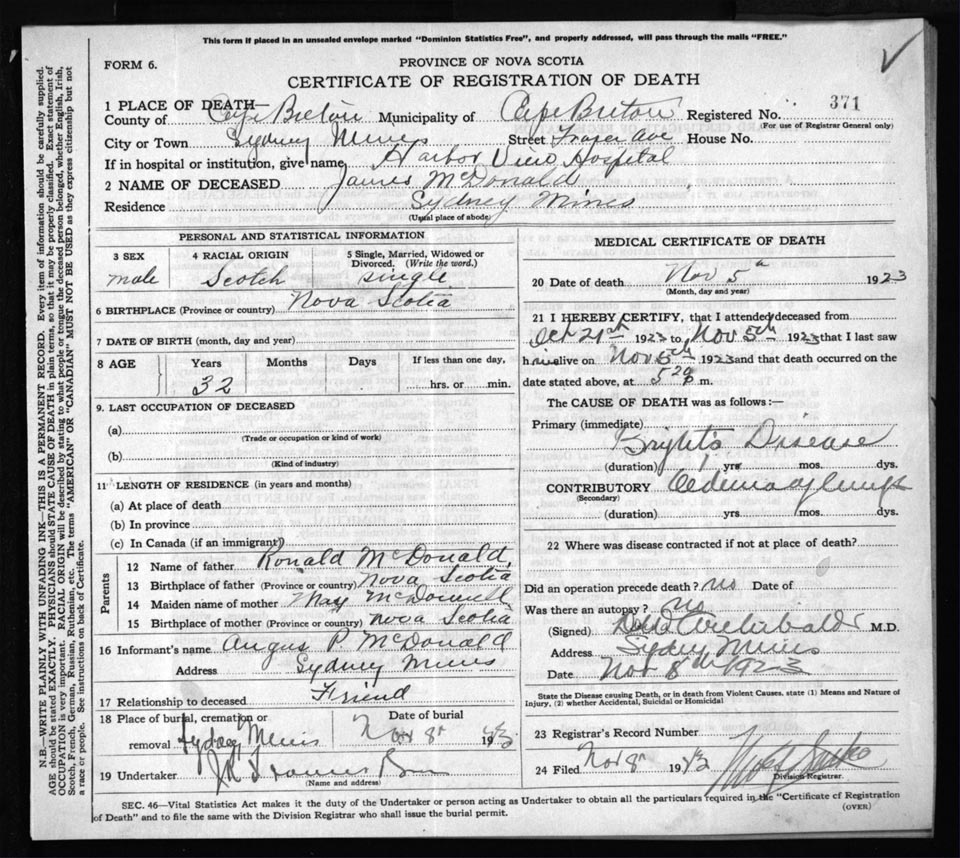 This form if placed in an unsealed envelope marked "Dominion Statistics Free", and properly addressed, will pass through the mails "FREE."
FORM 6.
PROVINCE OF NOVA SCOTIA
CERTIFICATE OF REGISTRATION OF DEATH
1 PLACE OF DEATH—
County of Cape Breton Municipality of Cape Breton Registered No. 371
(For use of Registrar General only)
City or Town Sydney Mines Street Fraser Ave House No.
If in hospital or institution, give name Harbor View Hospital
2 NAME OF DECEASED James McDonald
Residence Sydney Mines
(Usual place of abode)
PERSONAL AND STATISTICAL INFORMATION
3 SEX male
4 RACIAL ORIGIN Scotch
5 Single, Married, Widowed or Divorced. (Write the word.) single
6 BIRTHPLACE (Province or country) Nova Scotia
7 DATE OF BIRTH (month, day and year)
8 AGE Years Months Days If less than one day,
32 hrs. or min.
9. LAST OCCUPATION OF DECEASED
(a)
(Trade or occupation or kind of work)
(b)
(Kind of industry)
11 LENGTH OF RESIDENCE (in years and months)
(a) At place of death
(b) In province
(c) In Canada (if an immigrant)
Parents
12 Name of father Ronald McDonald
13 Birthplace of father (Province or country) Nova Scotia
14 Maiden name of mother May McDonnell
15 Birthplace of mother (Province or country) Nova Scotia
16 Informant's name Angus P. McDonald
Address Sydney Mines
17 Relationship to deceased Friend
18 Place of burial, cremation or Date of burial
removal Sydney Mines Nov 8th 19
19 Undertaker
(Name and address)
MEDICAL CERTIFICATE OF DEATH
20 Date of death Nov 5th 1923
(Month, day and year)
21 I HEREBY CERTIFY, that I attended deceased from
Oct 21st 1923 to Nov 5th 1923 that I last saw
h alive on Nov 5th 1923 and that death occurred on the
date stated above, at m.
The CAUSE OF DEATH was as follows:—
Primary (immediate)
Brights Disease
(duration) 1 yrs. mos. dys.
CONTRIBUTORY Oedema of lungs
(Secondary)
(duration) yrs. mos. dys.
22 Where was disease contracted if not at place of death?
Did an operation precede death? no Date of
Was there an autopsy? no
(Signed) Archibald M.D.
Address Sydney Mines
Date Nov 8th 1923
State the Disease causing Death, or in death from Violent Causes, state (1) Means and Nature of
Injury, (2) whether Accidental, Suicidal or Homicidal
23 Registrar's Record Number
24 Filed Nov 8th 19
Division Registrar.
SEC. 46—Vital Statistics Act makes it the duty of the Undertaker or person acting as Undertaker to obtain all the particulars required in the "Certificate of Registration
(OVER)
of Death" and to file the same with the Division Registrar who shall issue the burial permit.
N.B.—WRITE PLAINLY WITH UNFADING INK—THIS IS A PERMANENT RECORD. Every item of information should be carefully supplied.
AGE should be stated EXACTLY. PHYSICIANS should STATE CAUSE OF DEATH in plain terms, so that it may be properly classified. Exact statement of
OCCUPATION is very important. RACIAL ORIGIN will be described by stating to what people or tongue the deceased person belonged, whether English, Irish,
Scotch, French, German, Russian, Ruthenian, etc. The terms "AMERICAN" OR "CANADIAN" MUST NOT BE USED as they express citizenship but not
a race or people. See instructions on back of Certificate.